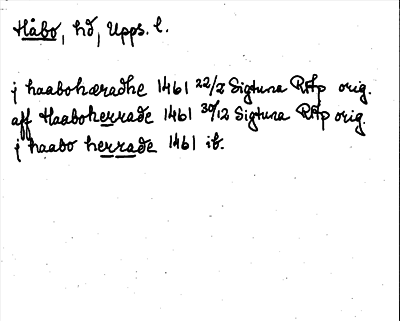 Håbo, hd, Upps. l.
j haaboheradhe 1461 22/2 Sigtuna RAp orig.
aff Haaboherrade 1461 30/12 Sigtuna RAp orig.
j haabo herrade 1461 ib.